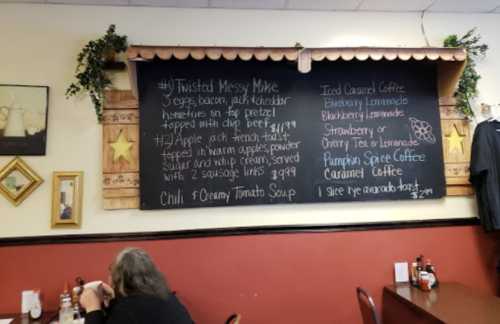 #1) Twisted Messy Mike
3 eggs, bacon, jack & cheddar
homefries on top pretzel
topped with chip beef $11.99
#2) Apple Jack french toast
topped in warm apples, powder
sugar and whip cream, served
with 2 sausage links $9.99
Chili & Creamy Tomato Soup
Iced Caramel Coffee
Blueberry Lemonade
Blackberry Lemonade
Strawberry or
Cherry Tea or Lemonade
Pumpkin Spice Coffee
Caramel Coffee
1 slice rye avocado toast
$2.99